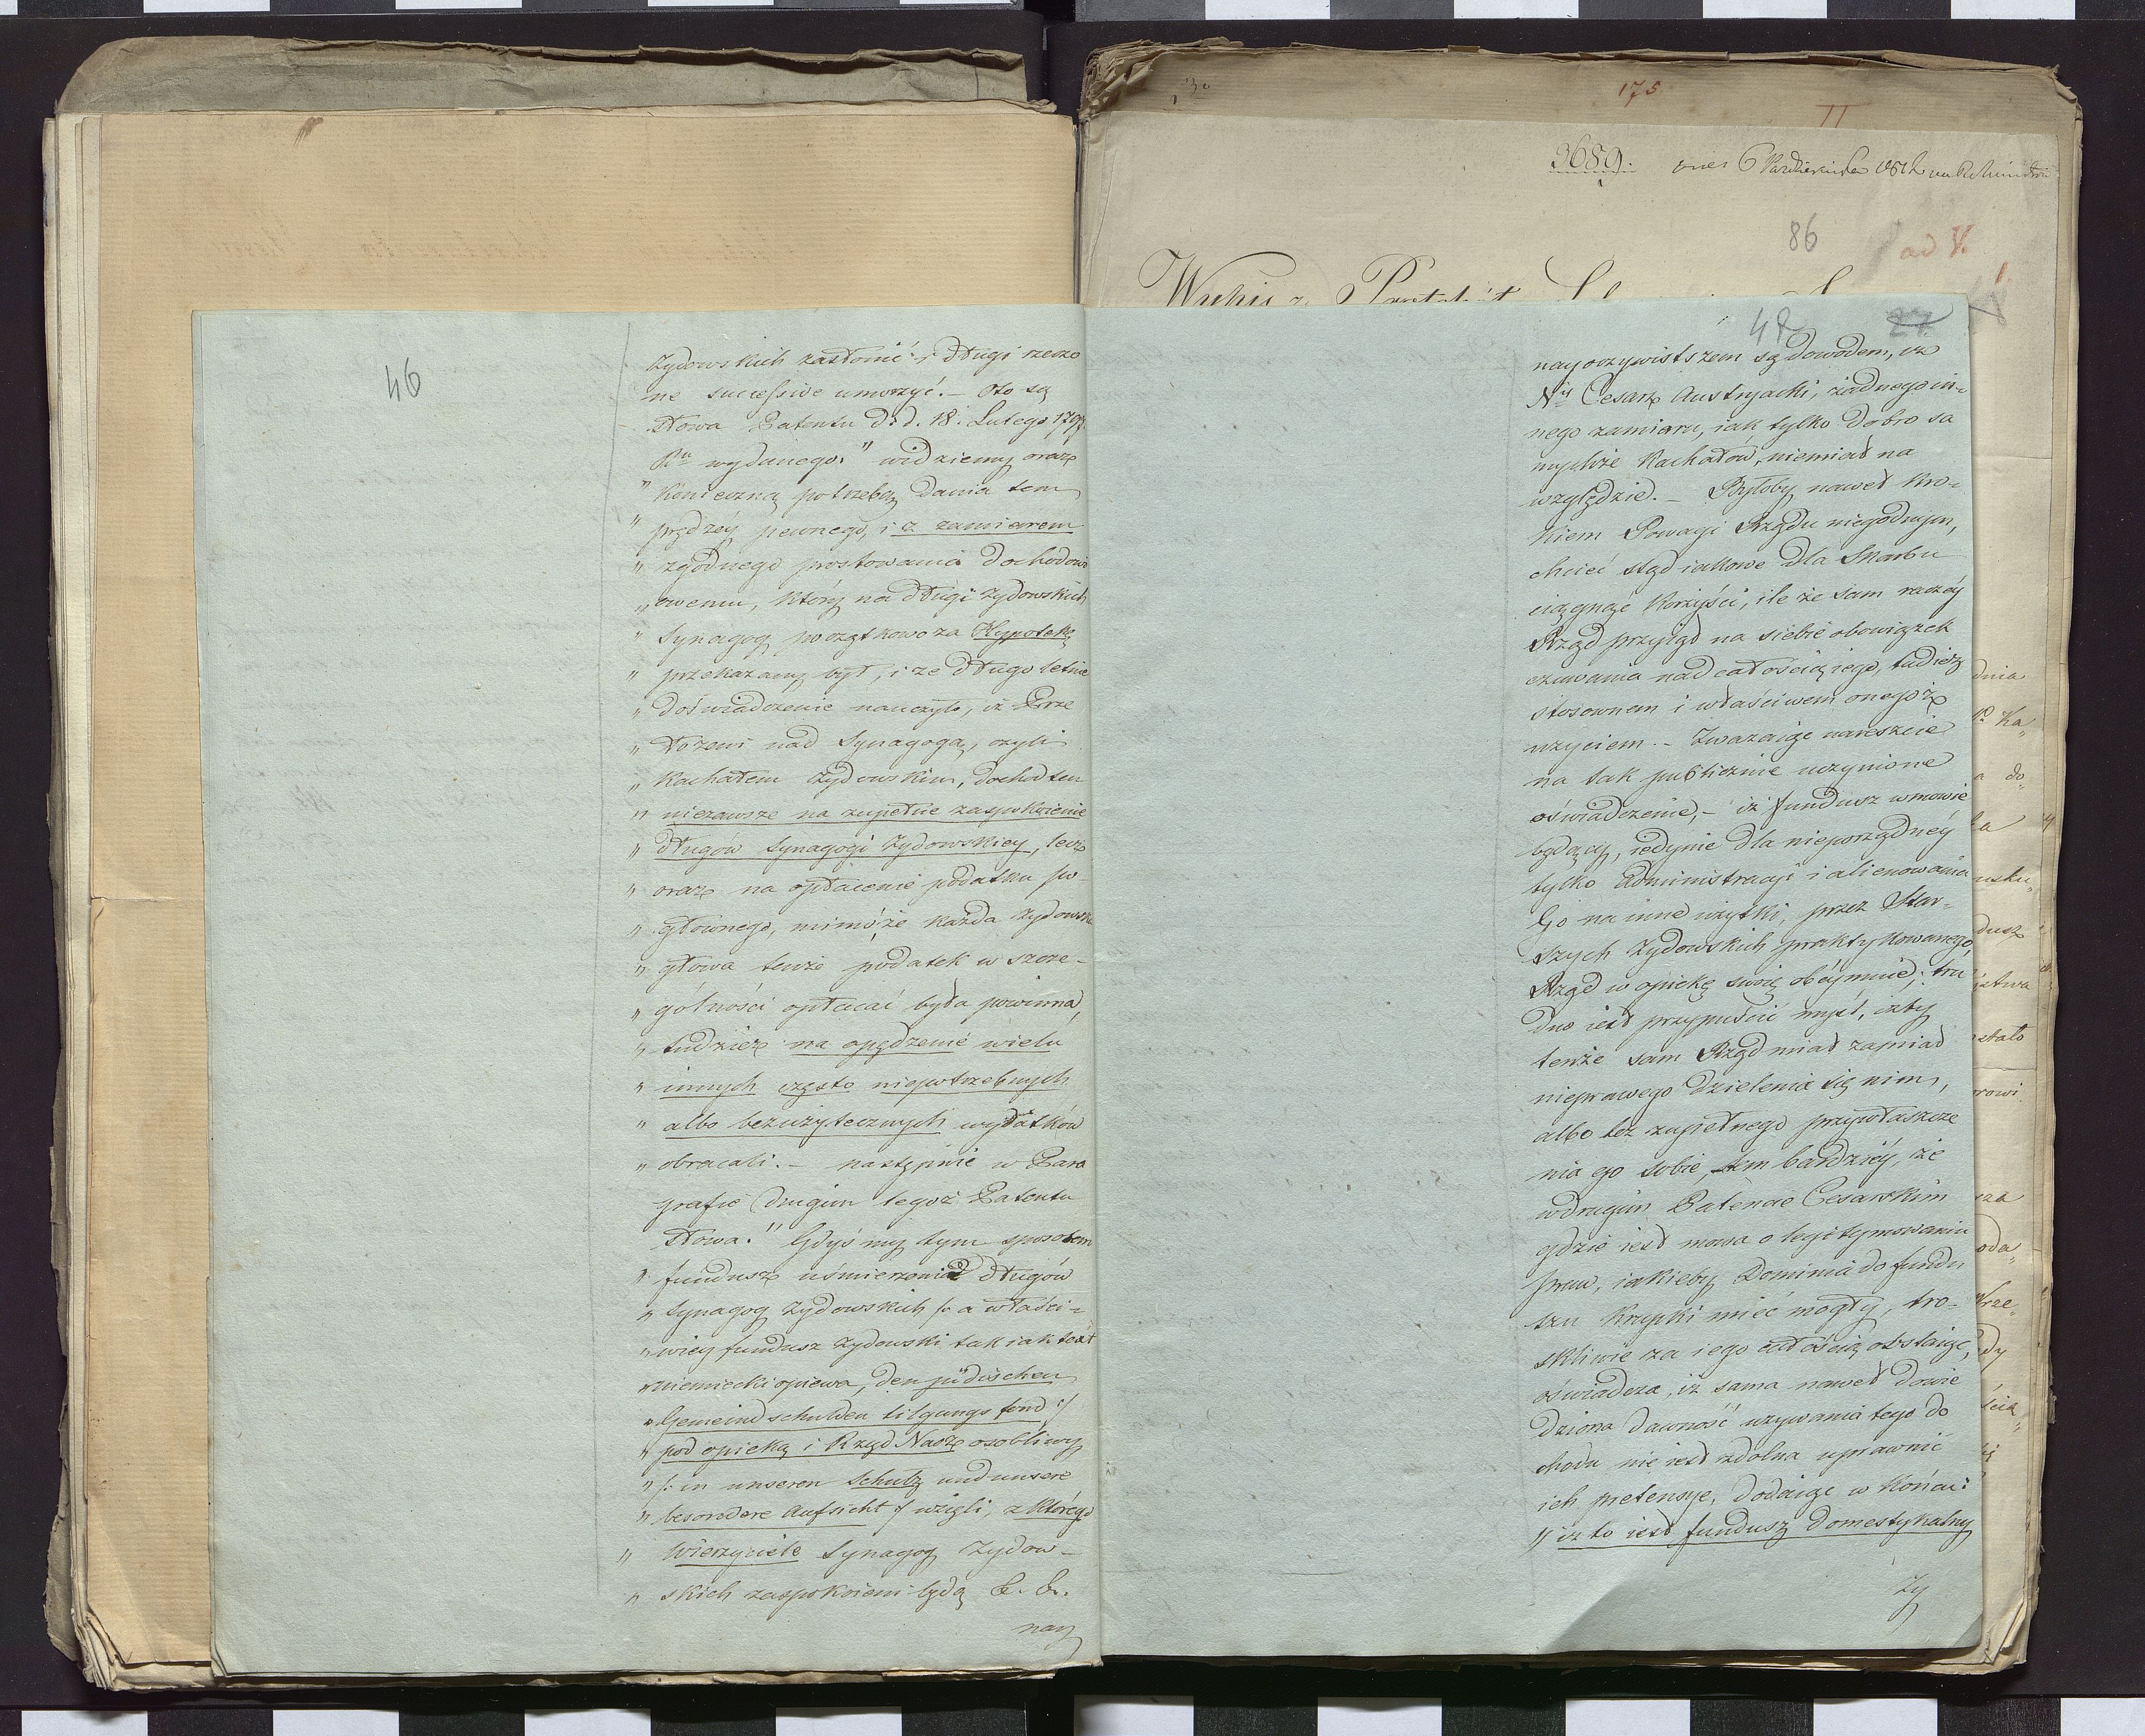 46
żydowskich zasłonić i długi rzeczo
ne successive umorzyć. — Oto są
słowa Patentu d: d. 18. Lutego 1797
Ru wydanego. " widziemy oraz
" konieczną potrzebę dania tem
" prędzéy pewnego, i z zamiarem
" zgodnego prostowania dochodowi
" owemu, który na długi żydowskich
" Synagog początkowo za Hypotekę
" przekazany był, i ze długo letnie
" doświadczenie nauczyło, iż Prze
" łożeni nad Synagogą, czyli
" Kachałem żydowskim, dochod ten
" niezawsze na zupełne zaspokoienie
" długów Synagogi żydowskiey, lecz
" oraz na opłacenie podatku po-
" głownego, mimo, że każda żydowska
" głowa tenże podatek w szcze-
" gólności opłacać była powinna,
" tudzież na opędzenie wielu
" innych często niepotrzebnych
" albo bezużytecznych wydatków
" obracali. — następnie w Para
grafie drugim tegoż Patentu
słowa." Gdyś my tym sposobem
" fundusz uśmierzenia długów
" Synagog żydowskich /: a właści=
" wiey fundusz żydowski tak iak text
" niemiecki opiewa, den jüdischen
" Gemeindschulden tilgungs fond :/
" pod opiekę i Rząd Nasz osobliwy
" /: in unseren Schutz und unsere
" besondere Aufsicht :/ wzięli, z którego
" Wierzyciele Synagog żydow-
" skich zaspokoieni będą &. &.
nay
175
II
3689.
86
ad V.
1.
48
27
nayoczywistszem są dowodem, iż
Nys Cesarz Austryacki, żadnego in=
nego zamiaru, iak tylko dobro sa
mychże Kachałów, niemiał na
względzie. — Byłoby nawet kro=
kiem Powagi Rządu niegodnym,
chcieć stąd iakowe dla Skarbu
ciągnąć korzyści, ile że sam raczéy
Rząd przyiął na siebie obowiązek
czuwania nad całością iego, tudzież
stosownem i właściwem onegoż
użyciem. — Zważaiąc nareszcie
na tak publicznie uczynione
oświadczenie, — iż fundusz w mowie
będący, iedynie dla nieporządnéy
tylko Administracyi i alienowania
Go na inne użytki, przez Star=
szych żydowskich praktykowanego,
Rząd w opiekę swoię obéymuie; tru
dno iest przypuścić myśl, iżby
tenże sam Rząd miał zamiar
nieprawego dzielenia się nim,
albo też zupełnego przywłaszcze
nia go sobie, tem bardziéy, że
w drugim Patencie Cesarskim
gdzie iest mowa o legitymowaniu
praw, iakieby Dominia do fundu
szu Krupki mieć mogły, tro=
skliwie za iego całością obstaiąc,
oświadcza, iż sama nawet dowie
dziona dawność używania tego do
chodu nie iest zdolna uprawnić
ich pretensye, dodaiąc w końcu:
" iż to iest fundusz domestykalny
ży